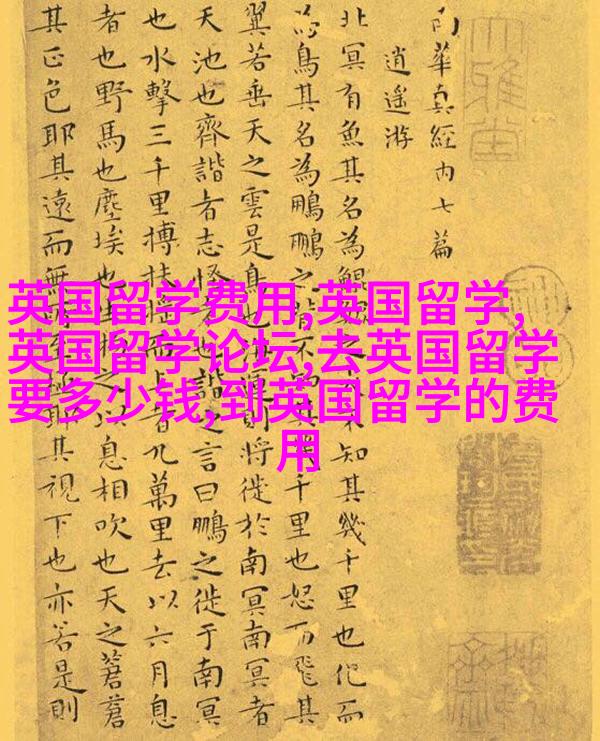 英国留学费用,英国留学,
英国留学论坛,去英国留学
要多少钱,到英国留学的费
用
南華真經内七篇
逍遥游
北冥有魚其名為鯤鯤之大不知其幾千里也化而
為鳥其名為鵬鵬之背不知其幾千里也怒而飛其
翼若垂天之雲是鳥也海運則將徙於南冥南冥者
天池也齊諧者志怪者也諧之言曰鵬之徙于南冥
也水擊三千里搏扶摇而上者九萬里去以六月息
者也野馬也塵埃也生物之以息相吹也天之蒼蒼
其正色耶其遠而無所至極耶其視下也亦若是則